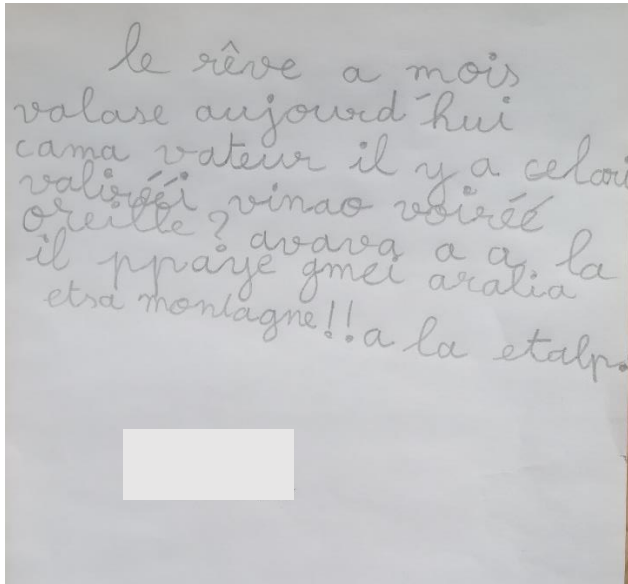 le rêve a mois
valase aujourd'hui
cama vateur il y a celari
valirééi vinao voiréé
oreille? avava a a la
il ppaye gmei aralia
etsa montagne!! a la etalp.